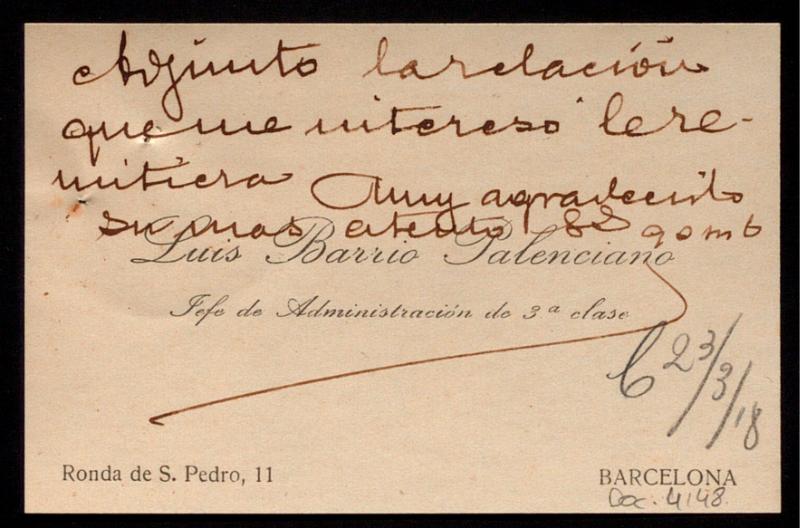 Adjunto la relación
que me interesó le re-
mitiera Muy agradecido
su mas atento SS q s m b
Luis Barrio Palenciano
Jefe de Administración de 3ª clase
C 23/3/18
Ronda de S. Pedro, 11
BARCELONA
Doc. 4148